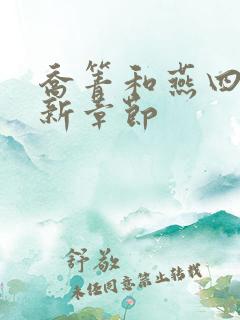 喬箐和燕四
新章節
舒敬
未任同意禁止转载